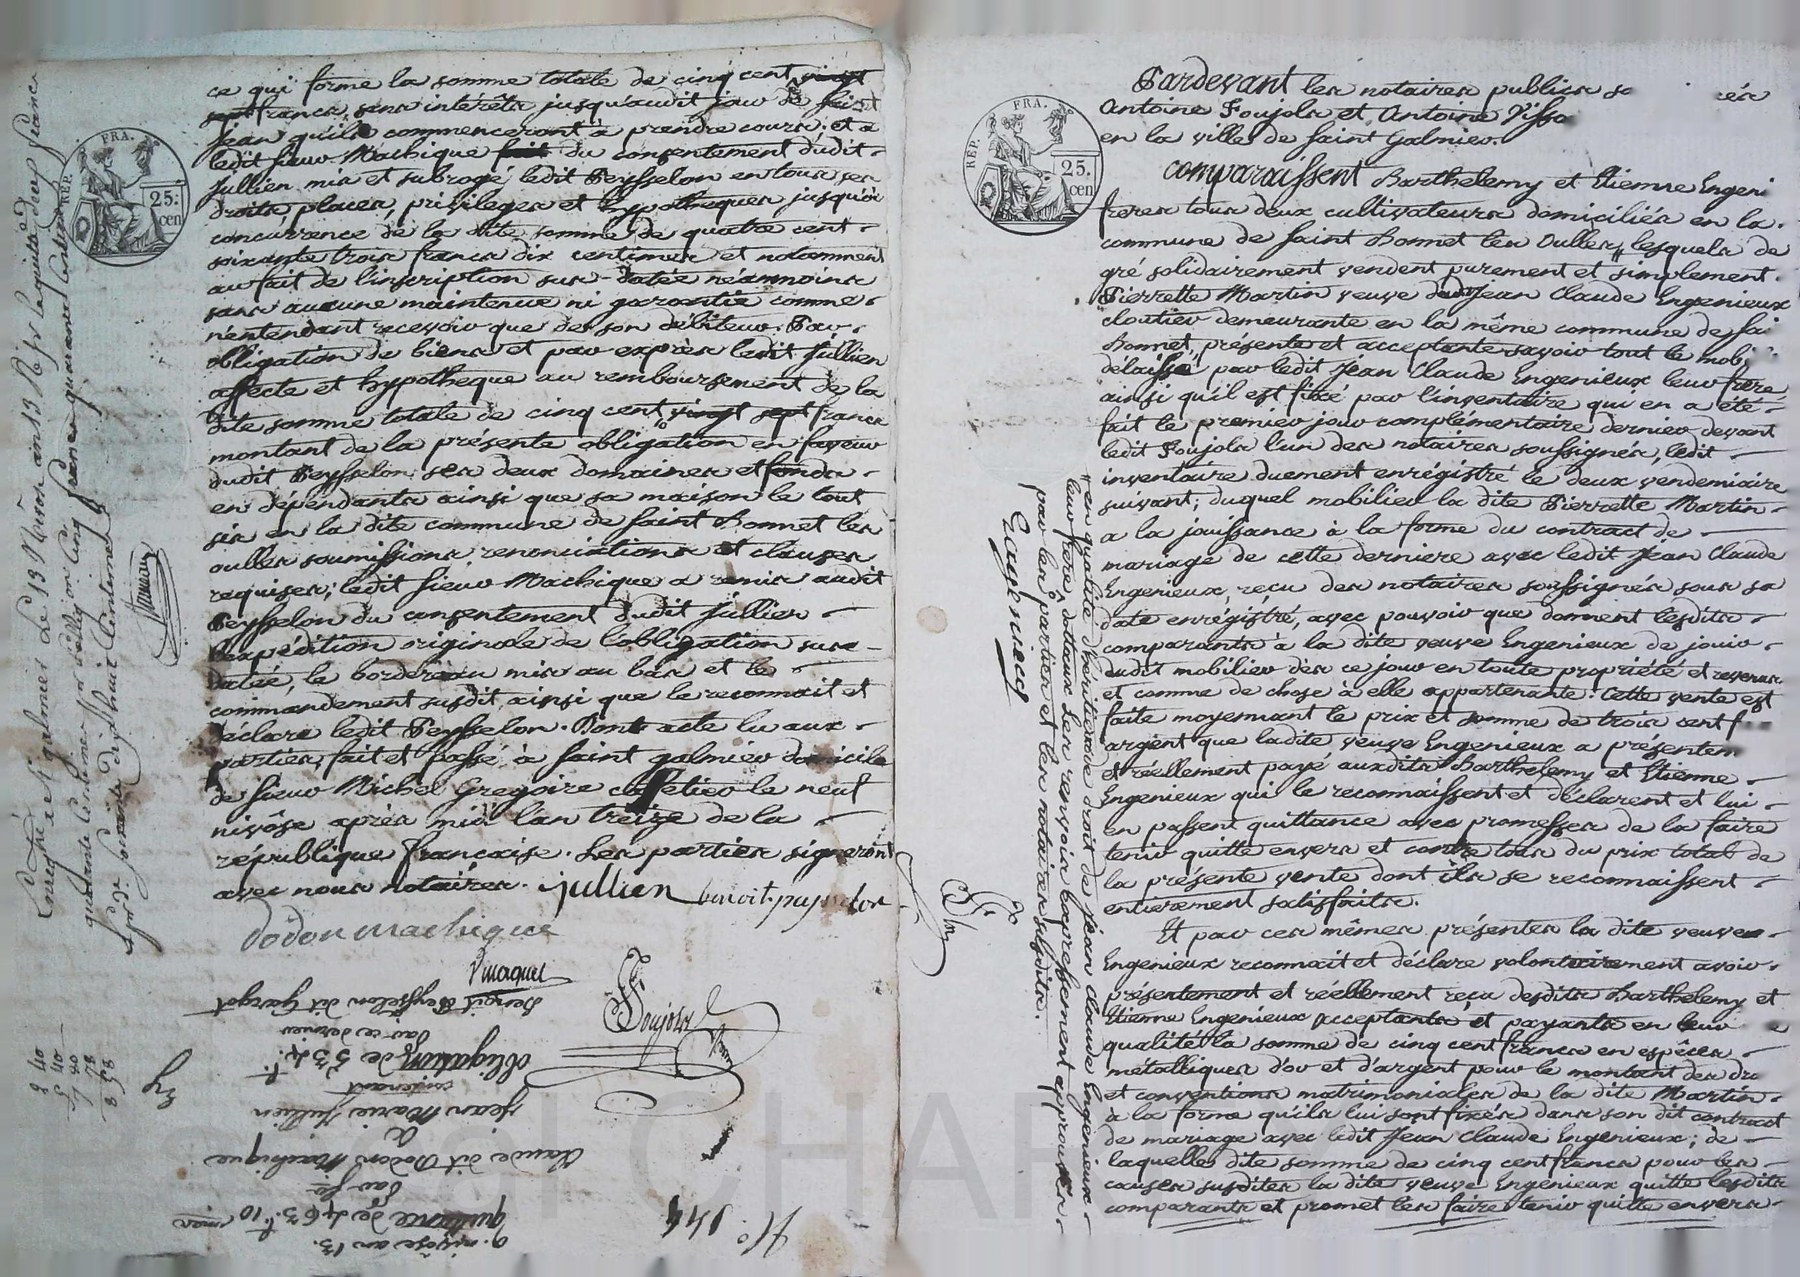 ce qui forme la somme totale de cinq cent vingt
sept francs, sans intérêts jusqu'audit jour de saint
Jean qu'ils commenceront à prendre cours. et a
ledit sieur Machique fait du consentement dudit
Jullien mis et subrogé ledit Peysselon en tous ses
droits, places, privileges et hypotheques jusqu'à
concurrence de la dite somme de quatre cent
soixante trois francs dix centimes et notamment
au fait de l'inscription sus-datée néanmoins
sans aucune maintenue ni garantie comme
n'entendant recevoir que de son débiteur. Par
obligation de biens et par exprès ledit Jullien
affecte et hypotheque au remboursement de la
dite somme totale de cinq cent vingt sept francs
montant de la présente obligation en faveur
dudit Peysselon ses deux domaines et fonds
en dépendants ainsi que sa maison le tout
sis en la dite commune de saint Bonnet les
oulles soumissions, renonciations et clauses
requises; ledit sieur Machique a remis audit
Peysselon du consentement dudit Jullien
l'expédition originale de l'obligation sus-
datée, le bordereau mis au bas et le
commandement susdit, ainsi que le reconnait et
déclare ledit Peysselon. Dont acte lu aux
parties, fait et passé à saint galmier domicile
de sieur Michel Gregoire caffetier le neuf
nivôse après midi l'an treize de la
république française. Les parties signeront
avec nous notaires. jullien benoit peysselon
Dodon machique
FRA.
REP.
25.
cen
Enregistré à St galmier le 13 Nivôse an 13
quarante centimes
Poujols
9. nivôse an 13.
quittance de 463.f 10
par sr
Claude dit Dodon Machique
à
Jean Marie Jullien
contenant
obligation de 534.f
par ce dernier
à
Benoit Peysselon dit Gargot
N.o 144
Pardevant les notaires publics
Antoine Poujols et Antoine
en la ville de saint Galmier.
comparaissent Barthelemy et Etienne Engeni
freres tous deux cultivateurs domiciliés en la
commune de saint Bonnet les Oulles, lesquels de
gré solidairement vendent purement et simplement
Pierrette Martin veuve dudit Jean Claude Engenieux
cloutier demeurante en la même commune de sai
Bonnet, présente et acceptante savoir tout le mobi
délaissé par ledit Jean Claude Engenieux leur frere
ainsi qu'il est fixé par l'inventaire qui en a été
fait le premier jour complémentaire dernier devant
ledit Poujols l'un des notaires soussignés, ledit
inventaire duement enrégistré le deux vendemiaire
suivant; duquel mobilier la dite Pierrette Martin
a la jouissance à la forme du contract de
mariage de cette derniere avec ledit Jean Claude
Engenieux, reçu des notaires soussignés sous sa
date enrégistré, avec pouvoir que donnent lesdits
comparants à la dite veuve Engenieux de jouir
dudit mobilier dès ce jour en toute propriété et revenus
et comme de chose à elle appartenante. Cette vente est
faite moyennant le prix et somme de trois cent f
argent que ladite veuve Engenieux a présentem
et réellement payé auxdits Barthelemy et Etienne
Engenieux qui le reconnaissent et déclarent et lui
en passent quittance avec promesses de la faire
tenir quitte envers et contre tous du prix total de
la présente vente dont ils se reconnaissent
entierement satisfaits.
Et par ces mêmes présentes la dite veuve
Engenieux reconnait et déclare volontairement avoir
présentement et réellement reçu desdits Barthelemy et
Etienne Engenieux acceptants et payants en leur
qualité la somme de cinq cent francs en espèces
métalliques d'or et d'argent pour le montant des dro
et conventions matrimoniales de la dite Martin
à la forme qu'ils lui sont fixés dans son dit contract
de mariage avec ledit Jean Claude Engenieux; de
laquelle dite somme de cinq cent francs pour les
causes susdites la dite veuve Engenieux quitte lesdits
comparants et promet les faire tenir quitte envers
FRA.
REP.
25.
cen
en qualité d'héritiers de droit de Jean Claude Engenieux
leur frere,
par les parties et les notaires susdits.
Engenieux